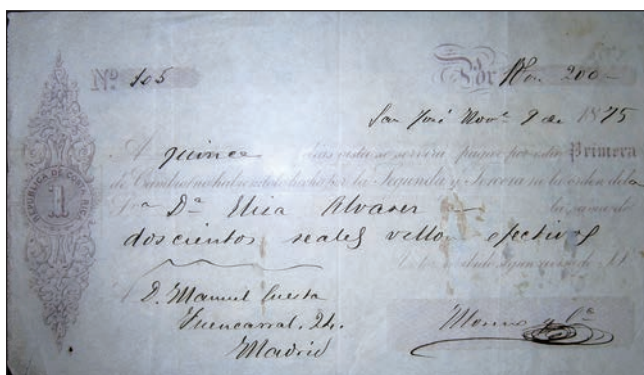 Nº 105 Por Rvon 200
San José Novre 9 de 1875
A quince días vista se servirá pagar por esta Primera
de Cambio no habiéndolo hecho por la Segunda y Tercera a la orden de la
Sra Dª Elisa Alvarez la suma de
doscientos reales vellon efectivos
D. Manuel Cuesta
Fuencarral. 24.
Madrid
REPUBLICA DE COSTA RICA
1